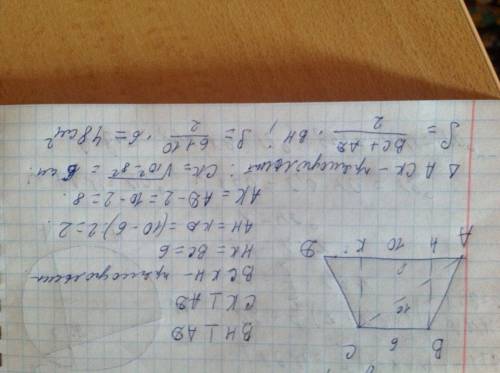 B 6 C
10
8
A H 10 K D
BH ⊥ AD
CK ⊥ AD
BCKH - прямоугольник
HK = BC = 6
AH = KD = (10 - 6) : 2 = 2
AK = AD - 2 = 10 - 2 = 8.
Δ ACK - прямоугольный: CK = √10² - 8² = 6 см.
S = BC + AD / 2 · BH; S = 6 + 10 / 2 · 6 = 48 см²